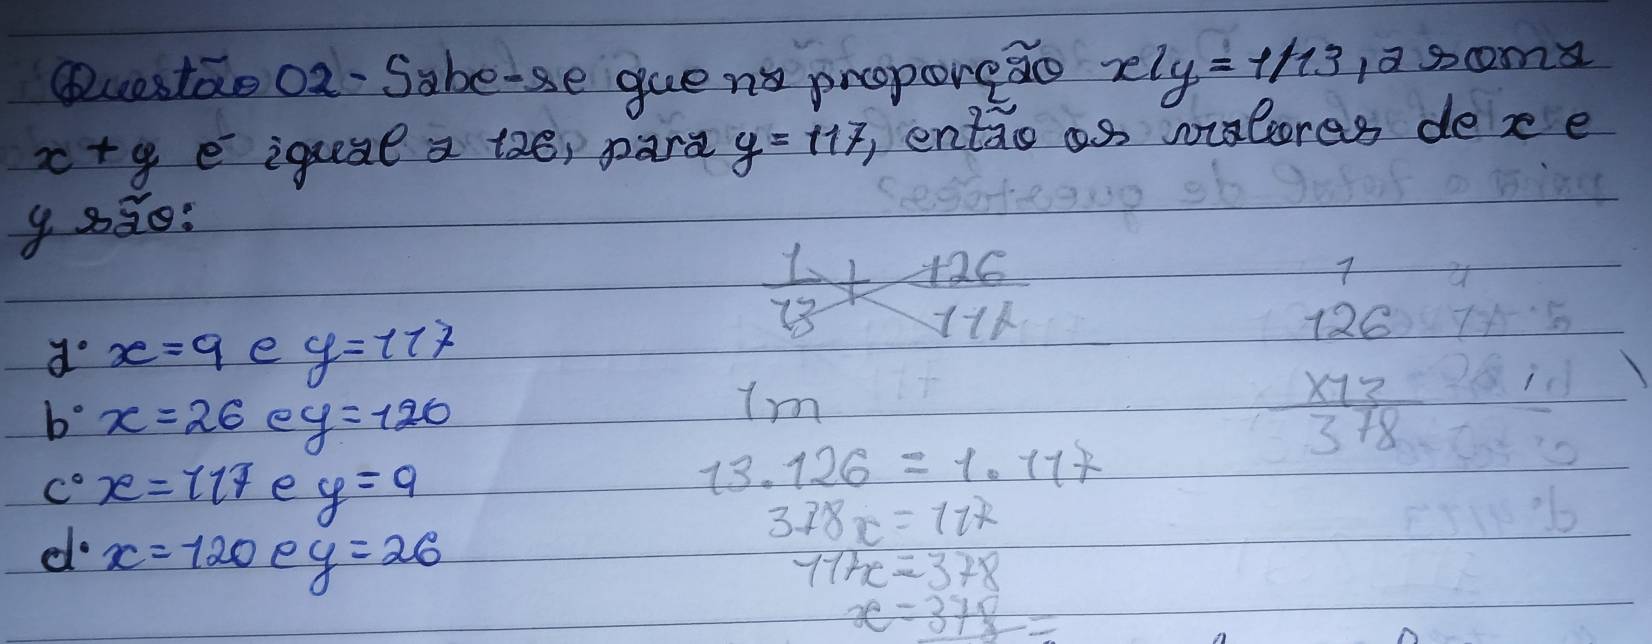 Questão 02 - Sabe-se que na proporção x/y = 1/13, a soma
x + y é igual a 126, para y = 117, então os valores de x e
y são:
1 126
13 117
1
126
x13
378
a. x = 9 e y = 117
b. x = 26 e y = 120
c. x = 117 e y = 9
d. x = 120 e y = 26
1m
13 . 126 = 1 . 117
378x = 117
117x = 378
x = 378 =